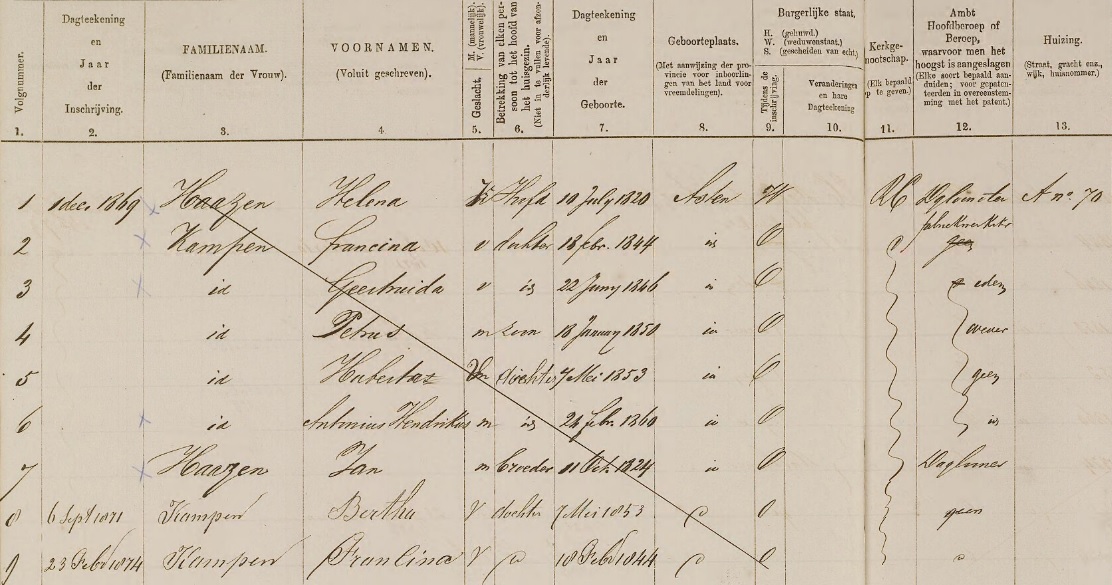 Volgnummer.
Dagteekening en Jaar der Inschrijving.
FAMILIENAAM. (Familienaam der Vrouw).
VOORNAMEN. (Voluit geschreven).
Geslacht. M. (mannelijk). V. (vrouwelijk).
Betrekking van elken persoon tot het hoofd van het huisgezin. (Niet in te vullen voor afzonderlijk levende).
Dagteekening en Jaar der Geboorte.
Geboorteplaats. (Met aanwijzing der provincie voor inboorlingen van het land voor vreemdelingen).
Burgerlijke staat. H. (gehuwd). W. (weduwenstaat). S. (gescheiden van echt).
Tijdens de inschrijving.
Veranderingen en hare Dagteekening
Kerkgenootschap. (Elk bepaald op te geven.)
Ambt Hoofdberoep of Beroep, waarvoor men het hoogst is aangeslagen (Elke soort bepaald aanduiden; voor gepatenteerden in overeenstemming met het patent.)
Huizing. (Straat, gracht enz., wijk, huisnommer.)
1. 2. 3. 4 5. 6. 7. 8. 9. 10. 11. 12. 13.
1 1 dec. 1869 Haazen Helena Hofd 10 July 1820 Asten W RC A no. 70
2 Kampen Francina v dochter 18 febr. 1844 id O
3 id Geertruida v id 22 Juny 1846 id O
4 id Petrus m zoon 18 January 1850 id O wever
5 id dochter 7 Mei 1853 id O geen
6 id Antonius Hendrikus m id 24 febr. 1860 id O id
7 Haazen Jan m broeder 11 Oct. 1824 id O
8 6 Sept 1871 Kampen Bertha V dochter 7 Mei 1853 O geen
9 23 Febr 1874 Kampen Francina V 18 Febr 1844 O